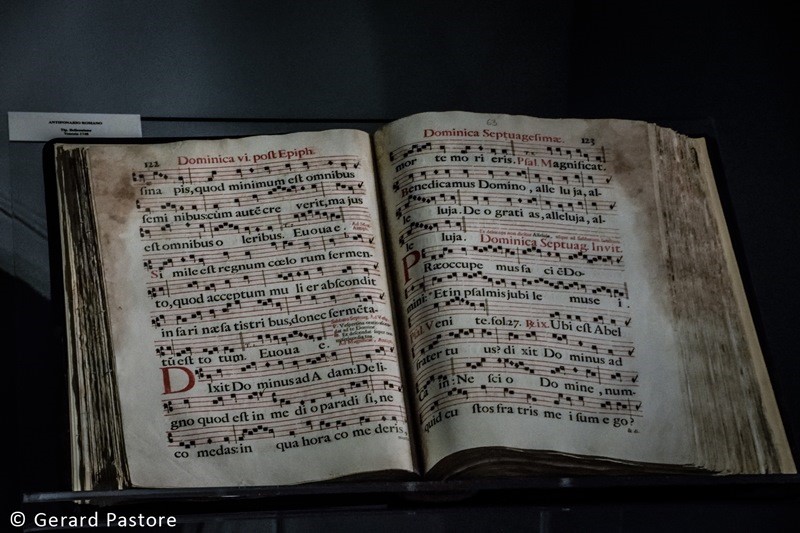 ANTIFONARIO ROMANO
122
Dominica vi. post Epiph.
sina pis, quod minimum est omnibus
semi nibus cùm autē cre verit, ma jus
est omnibus o leribus. Euouae.
Si mile est regnum cœlo rum fermen-
to, quod acceptum mu li er abscondit
in fari næ sa tis tri bus, donec fermēta-
tū est to tum. Euoua e.
DIxit Do minus ad A dam: De li-
gno quod est in me di o paradi si, ne
co medas: in qua hora co me deris,
63
Dominica Septuagesimæ. 123
mor te mo ri eris. Psal. Magnificat.
Benedicamus Domino, alle lu ja, al-
le luja. De o grati as, alleluja, al-
le luja.
Dominica Septuag. Invit.
PRæoccupe mus fa ci ē Do-
mini: * Et in psalmis jubi le muse i.
Psal. Veni te. fol. 27. R. ix. Ubi est Abel
frater tu us? di xit Do minus ad
Ca in: Ne sci o Do mine, num-
quid cu stos fra tris me i sum e go?
© Gerard Pastore